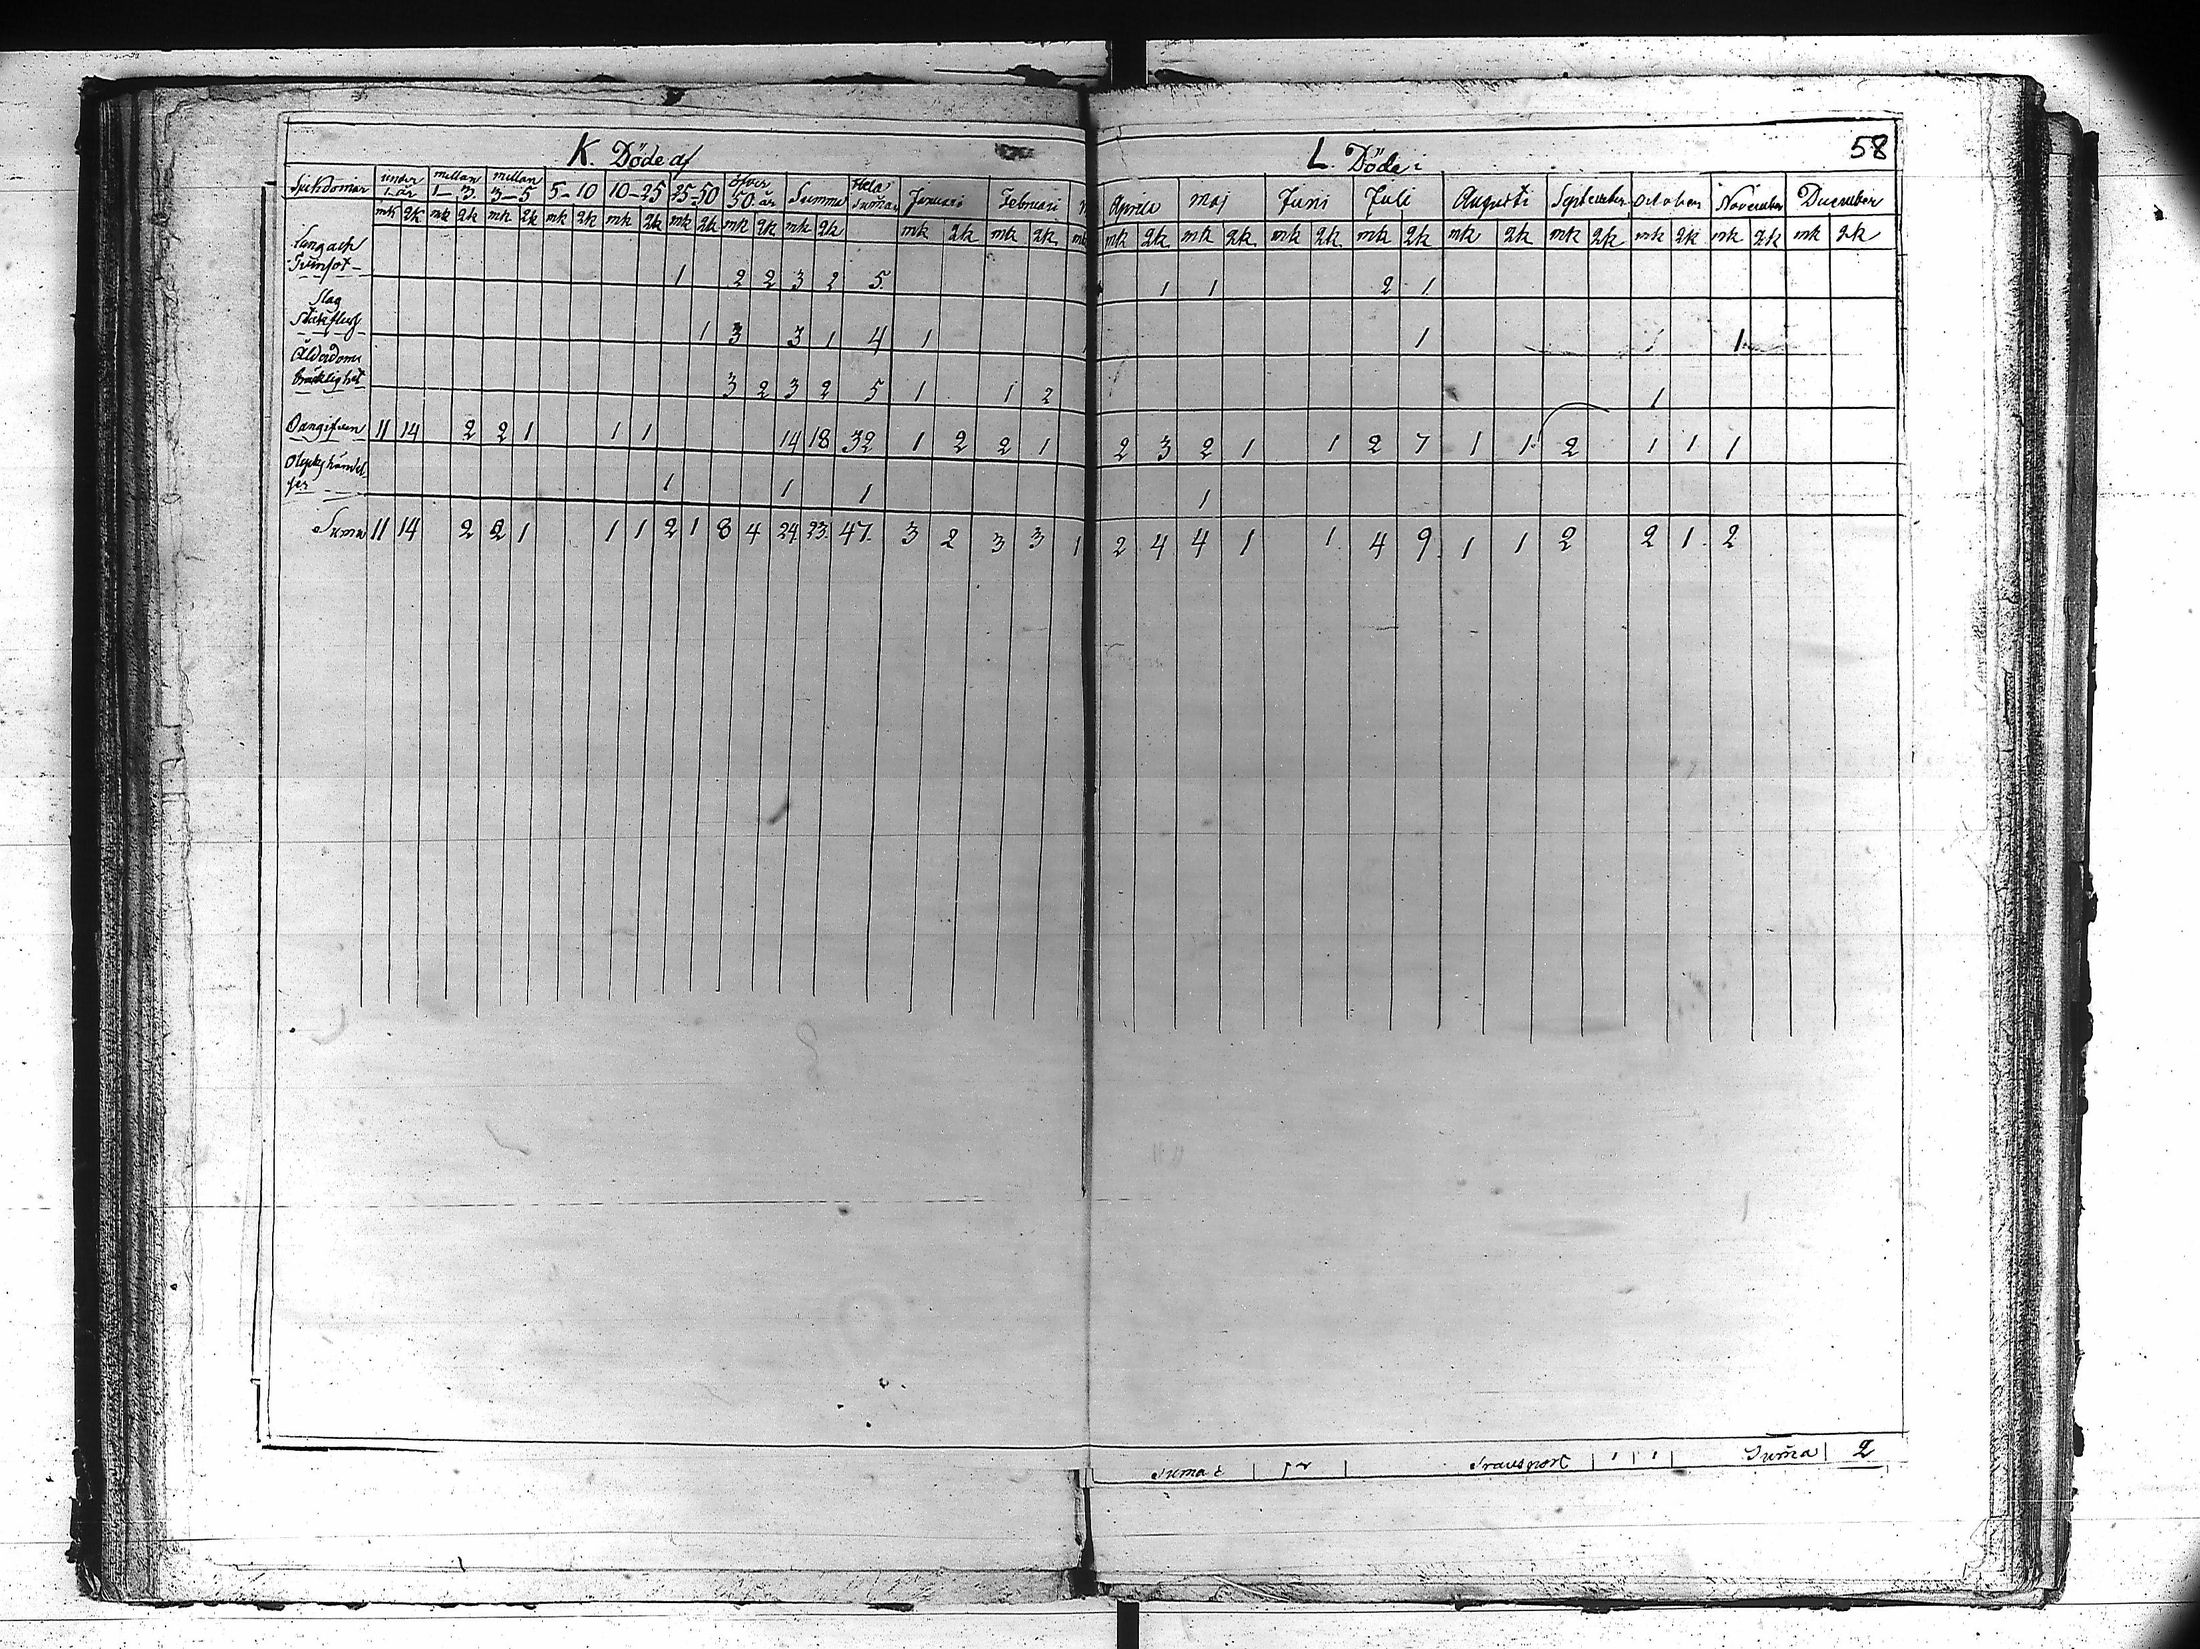 K. Döde af
L. Döde i
58
Sjukdomar under 1 år mellan 1–3 mellan 3–5 5–10 10–25 25–50 öfver 50 år Summa Hela Suman Januari Februari Aprill Maj Juni Juli Augusti September October November December
mk qk mk qk mk qk mk qk mk qk mk qk mk qk mk qk mk qk mk qk mk mk qk mk qk mk qk mk qk mk qk mk qk mk qk mk qk mk qk
Lung och
Tvinsot 1 2 2 3 2 5 1 1 2 1
Slag
Stickfluss 1 3 3 1 4 1 1 1 1
Ålderdoms
bräcklighet 3 2 3 2 5 1 1 2 1
Oangifven 11 14 2 2 1 1 1 14 18 32 1 2 2 1 2 3 2 1 1 2 7 1 1 2 1 1 1
Olyckshändel
ser 1 1 1 1
Suma 11 14 2 2 1 1 1 2 1 8 4 24 23 47 3 2 3 3 1 2 4 4 1 1 4 9 1 1 2 2 1 2
Suma
Transport 1 1 Suma 2